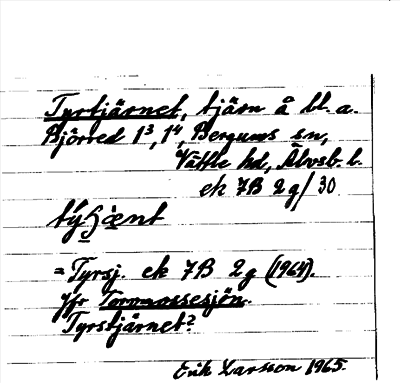 Tyrtjärnet, tjärn å bl. a.
Björred 1³, 1⁴, Bergums sn,
Vättle hd, Älvsb. l.
ek 7B 2g/30
= Tyrsj. ek 7B 2g (1964).
Jfr Tormossesjön.
Tyrstjärnet?
Erik Larsson 1965.